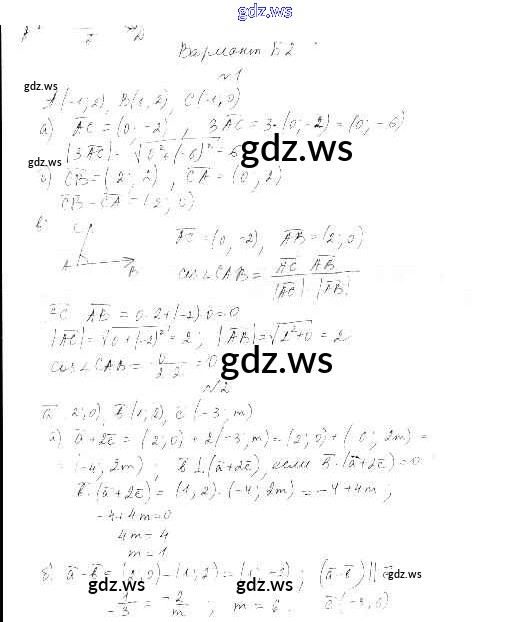 gdz.ws
Вариант Б2
gdz.ws
№1
A(-1;2), B(1,2), C(-1,0)
а) AC = (0; -2), 3AC = 3·(0;-2) = (0; -6)
gdz.ws
|3AC| = √0²+(-6)² = 6
gdz.ws
б) CB = (2; 2), CA = (0, 2)
CB - CA = (2; 0)
в)
C
A
B
AC = (0, -2), AB = (2; 0)
cos∠CAB = AC AB / |AC|·|AB|
AC AB = 0·2+(-2)·0=0
|AC| = √0+(-2)² = 2; |AB| = √2²+0 = 2
cos∠CAB = 0/2·2 = 0
gdz.ws
№2
a 2;0), b(1;2), c(-3; m)
а) a+2c = (2; 0) + 2(-3, m) = (2; 0) + (-6; 2m) =
= (-4; 2m); b⊥(a+2c), если b·(a+2c)=0.
b·(a+2c) = (1, 2)·(-4; 2m) = -4+4m;
-4+4m=0
4m=4
m=1
б) a-b = (2,0)-(1;2) = (1; -2); (a-b) || c
gdz.ws
gdz.ws
gdz.ws
1/-3 = -2/m; m = 6. c(-3;6)